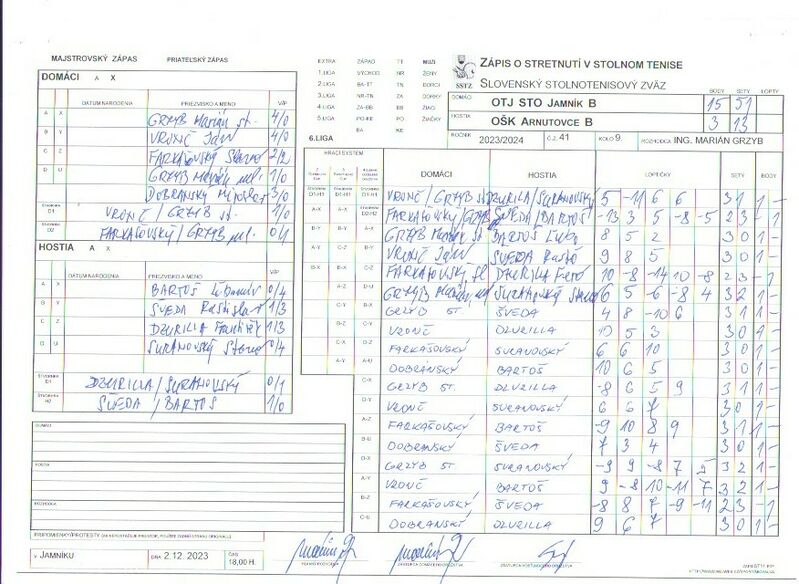 MAJSTROVSKÝ ZÁPAS PRIATEĽSKÝ ZÁPAS
DOMÁCI A X
DÁTUM NARODENIA PRIEZVISKO A MENO V/P
A X GRZYB Marián st. 4/0
B Y VRONČ Ján 4/0
C Z FARKAŠOVSKÝ 2/2
D U GRZYB Marián ml. 1/0
DOBRANSKÝ Miroslav 3/0
D1 VRONČ / GRZYB st. 1/0
D2 FARKAŠOVSKÝ / GRZYB ml. 0/1
HOSTIA A X
DÁTUM NARODENIA PRIEZVISKO A MENO V/P
A X BARTOŠ 0/4
B Y ŠVEDA Rastislav 1/3
C Z DZURILLA František 1/3
D U SURANOVSKÝ 0/4
DZURILLA/SURANOVSKÝ 0/1
ŠVEDA / BARTOŠ 1/0
DOMÁCI
HOSTIA
ROZHODCA
V JAMNÍKU DŇA 2.12. 2023 ČAS 18,00 H.
EXTRA ZÁPAD TT MUŽI
1.LIGA VÝCHOD NR ŽENY
2.LIGA BA-TT TN DORCI
3.LIGA NR-TN ZA DORKY
4.LIGA ZA-BB BB ŽIACI
5.LIGA PO-KE PO ŽIAČKY
6.LIGA BA KE
SSTZ
ZÁPIS O STRETNUTÍ V STOLNOM TENISE
SLOVENSKÝ STOLNOTENISOVÝ ZVÄZ
BODY SETY LOPTY
DOMÁCI OTJ STO Jamník B 15 51
HOSTIA OŠK Arnutovce B 3 13
ROČNÍK 2023/2024 Č.Z. 41 KOLO 9. ROZHODCA ING. MARIÁN GRZYB
HRACÍ SYSTÉM DOMÁCI HOSTIA LOPTIČKY SETY BODY
VRONČ / GRZYB st. DZURILLA/SURANOVSKÝ 5 -11 6 6 3 1 1 -
FARKAŠOVSKÝ/GRZYB ŠVEDA/BARTOŠ -13 3 5 -8 -5 2 3 - 1
GRZYB Marián st BARTOŠ 8 5 2 3 0 1 -
VRONČ Ján ŠVEDA Rasťo 9 8 5 3 0 1 -
FARKAŠOVSKÝ DZURILLA Fero 10 -8 -14 10 -8 2 3 - 1
GRZYB Marián ml SURANOVSKÝ 6 5 -6 -8 4 3 2 1 -
GRZYB ŠVEDA 4 8 -10 6 3 1 1 -
VRONČ DZURILLA 10 5 3 3 0 1 -
FARKAŠOVSKÝ SURANOVSKÝ 6 6 10 3 0 1 -
DOBRANSKÝ BARTOŠ 10 6 5 3 0 1 -
GRZYB ST. DZURILLA -8 6 5 9 3 1 1 -
VRONČ SURANOVSKÝ 6 6 7 3 0 1 -
FARKAŠOVSKÝ BARTOŠ -9 10 8 9 3 1 1 -
DOBRANSKÝ ŠVEDA 7 3 4 3 0 1 -
GRZYB ST SURANOVSKÝ -9 9 -8 7 3 2 1 -
VRONČ BARTOŠ 9 -8 10 -11 7 3 2 1 -
FARKAŠOVSKÝ ŠVEDA -8 8 7 -9 -11 2 3 - 1
DOBRANSKÝ DZURILLA 9 6 7 3 0 1 -